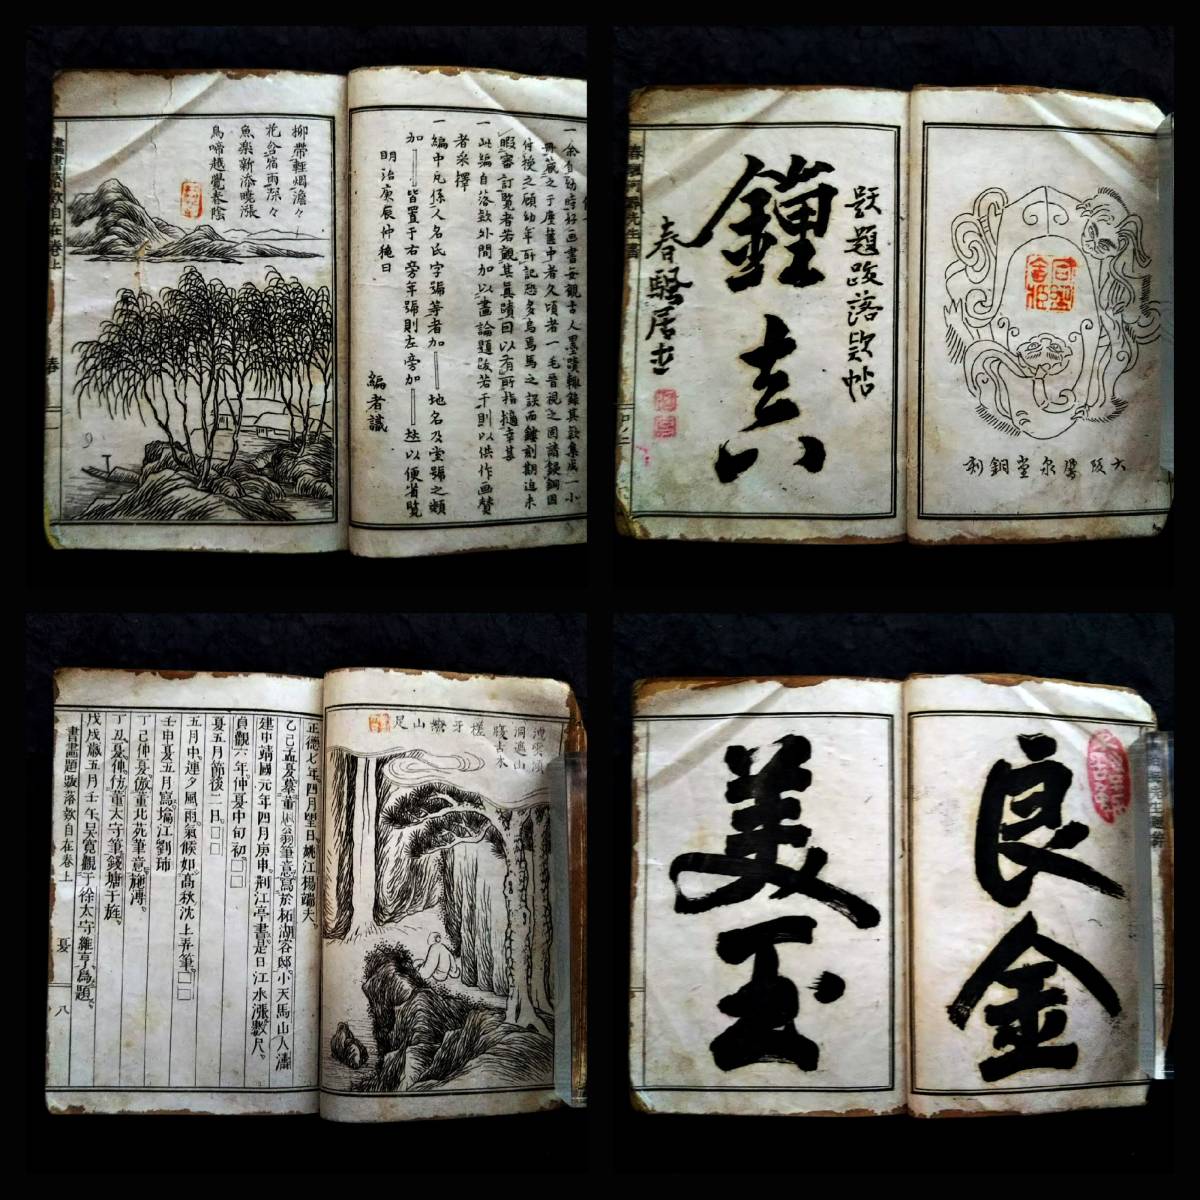 一余自幼時好画書每観古人墨蹟輒録其款集成一小
冊蔵之于塵篋中者久頃者一毛晉視之因請鏤銅因
付授之顧幼年所記恐多烏焉之誤而鏤刻期迫未
暇審訂覧者若観其真蹟因以有所指擿幸甚
一此編自落款外間加以畫論題跋若干則以供作画賛
者采擇
一編中凡係人名氏字號等者加 地名及堂號之類
加 皆置于右旁年號則左旁加 以便省覧
明治庚辰仲穐日
編者識
柳帶輕烟澹々
花含宿雨深々
魚楽新添暁漲
鳥啼越覺春陰
落款自在巻上
春
一
大阪響泉堂銅刻
題跋落款帖
春 居士
足山 牙槎
正德七年四月望日姚江楊端夫
乙巳孟夏摹董思翁筆意寫於柘湖客邸小天馬山人濤
建中靖國元年四月庚申荊江亭書是日江水漲數尺
貞觀六年仲夏中旬初□□
夏五月節後二日□□
五月中連夕風雨氣候如高秋沈上弄筆□□
壬申夏五月寫 江劉
丁巳仲夏倣董北苑筆意施溥
丁丑夏仲仿董太守筆錢塘于旌
戊戌歳五月壬午吳寬觀于徐太守維亨 題
書畫題跋落款自在巻上
夏
八
良金
美玉